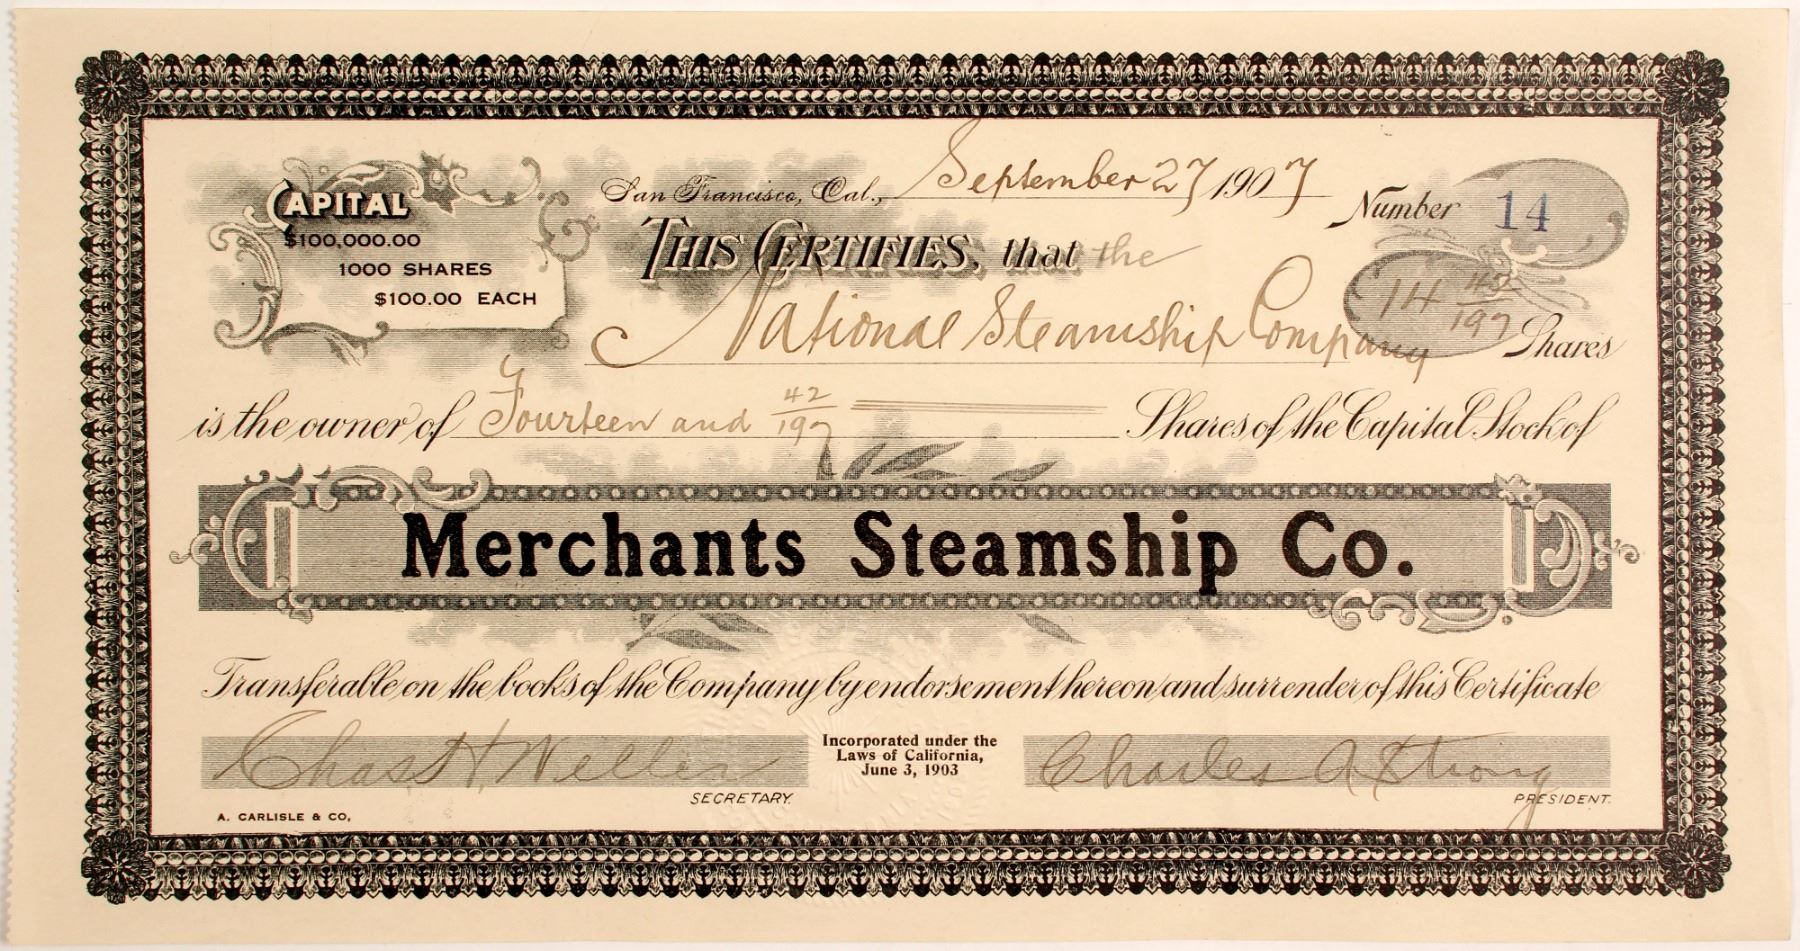 CAPITAL
$100,000.00
1000 SHARES
$100.00 EACH
San Francisco, Cal., September 27 1907
Number 14
THIS CERTIFIES, that the
National Steamship Company
14 42/197 Shares
is the owner of Fourteen and 42/197 Shares of the Capital Stock of
Merchants Steamship Co.
Transferable on the books of the Company by endorsement hereon and surrender of this Certificate
Chas. H. Weller
SECRETARY.
Incorporated under the
Laws of California,
June 3, 1903
Charles A Strong
PRESIDENT.
A. CARLISLE & CO,